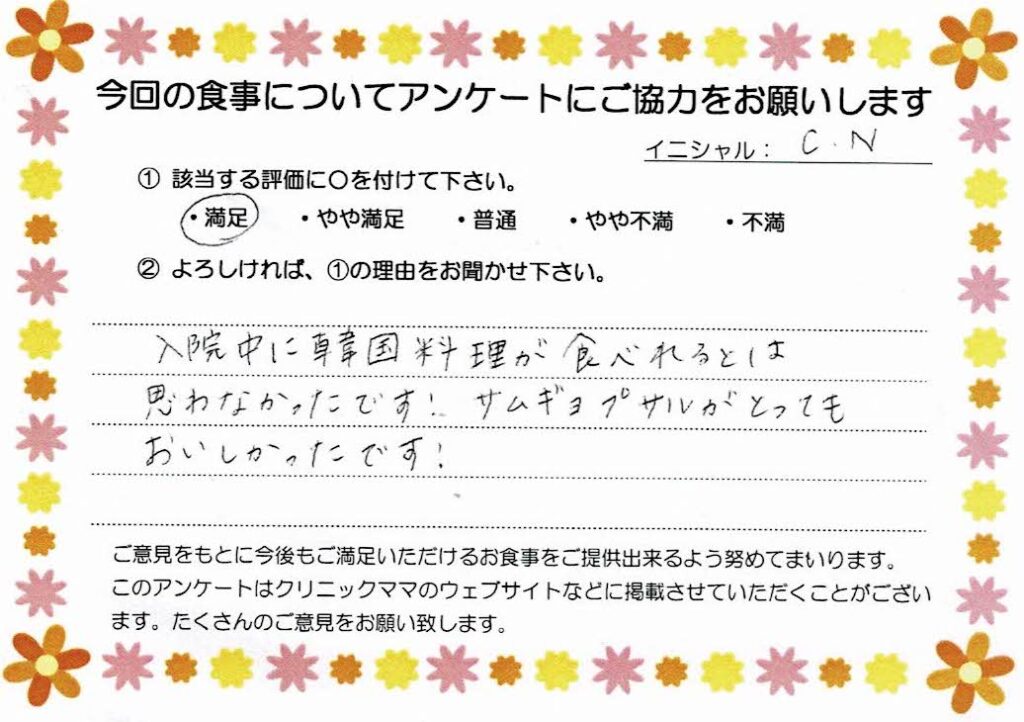 今回の食事についてアンケートにご協力をお願いします
イニシャル： C.N
① 該当する評価に〇を付けて下さい。
・満足 ・やや満足 ・普通 ・やや不満 ・不満
② よろしければ、①の理由をお聞かせ下さい。
入院中に韓国料理が食べれるとは
思わなかったです! サムギョプサルがとっても
おいしかったです!
ご意見をもとに今後もご満足いただけるお食事をご提供出来るよう努めてまいります。
このアンケートはクリニックママのウェブサイトなどに掲載させていただくことがござい
ます。たくさんのご意見をお願い致します。